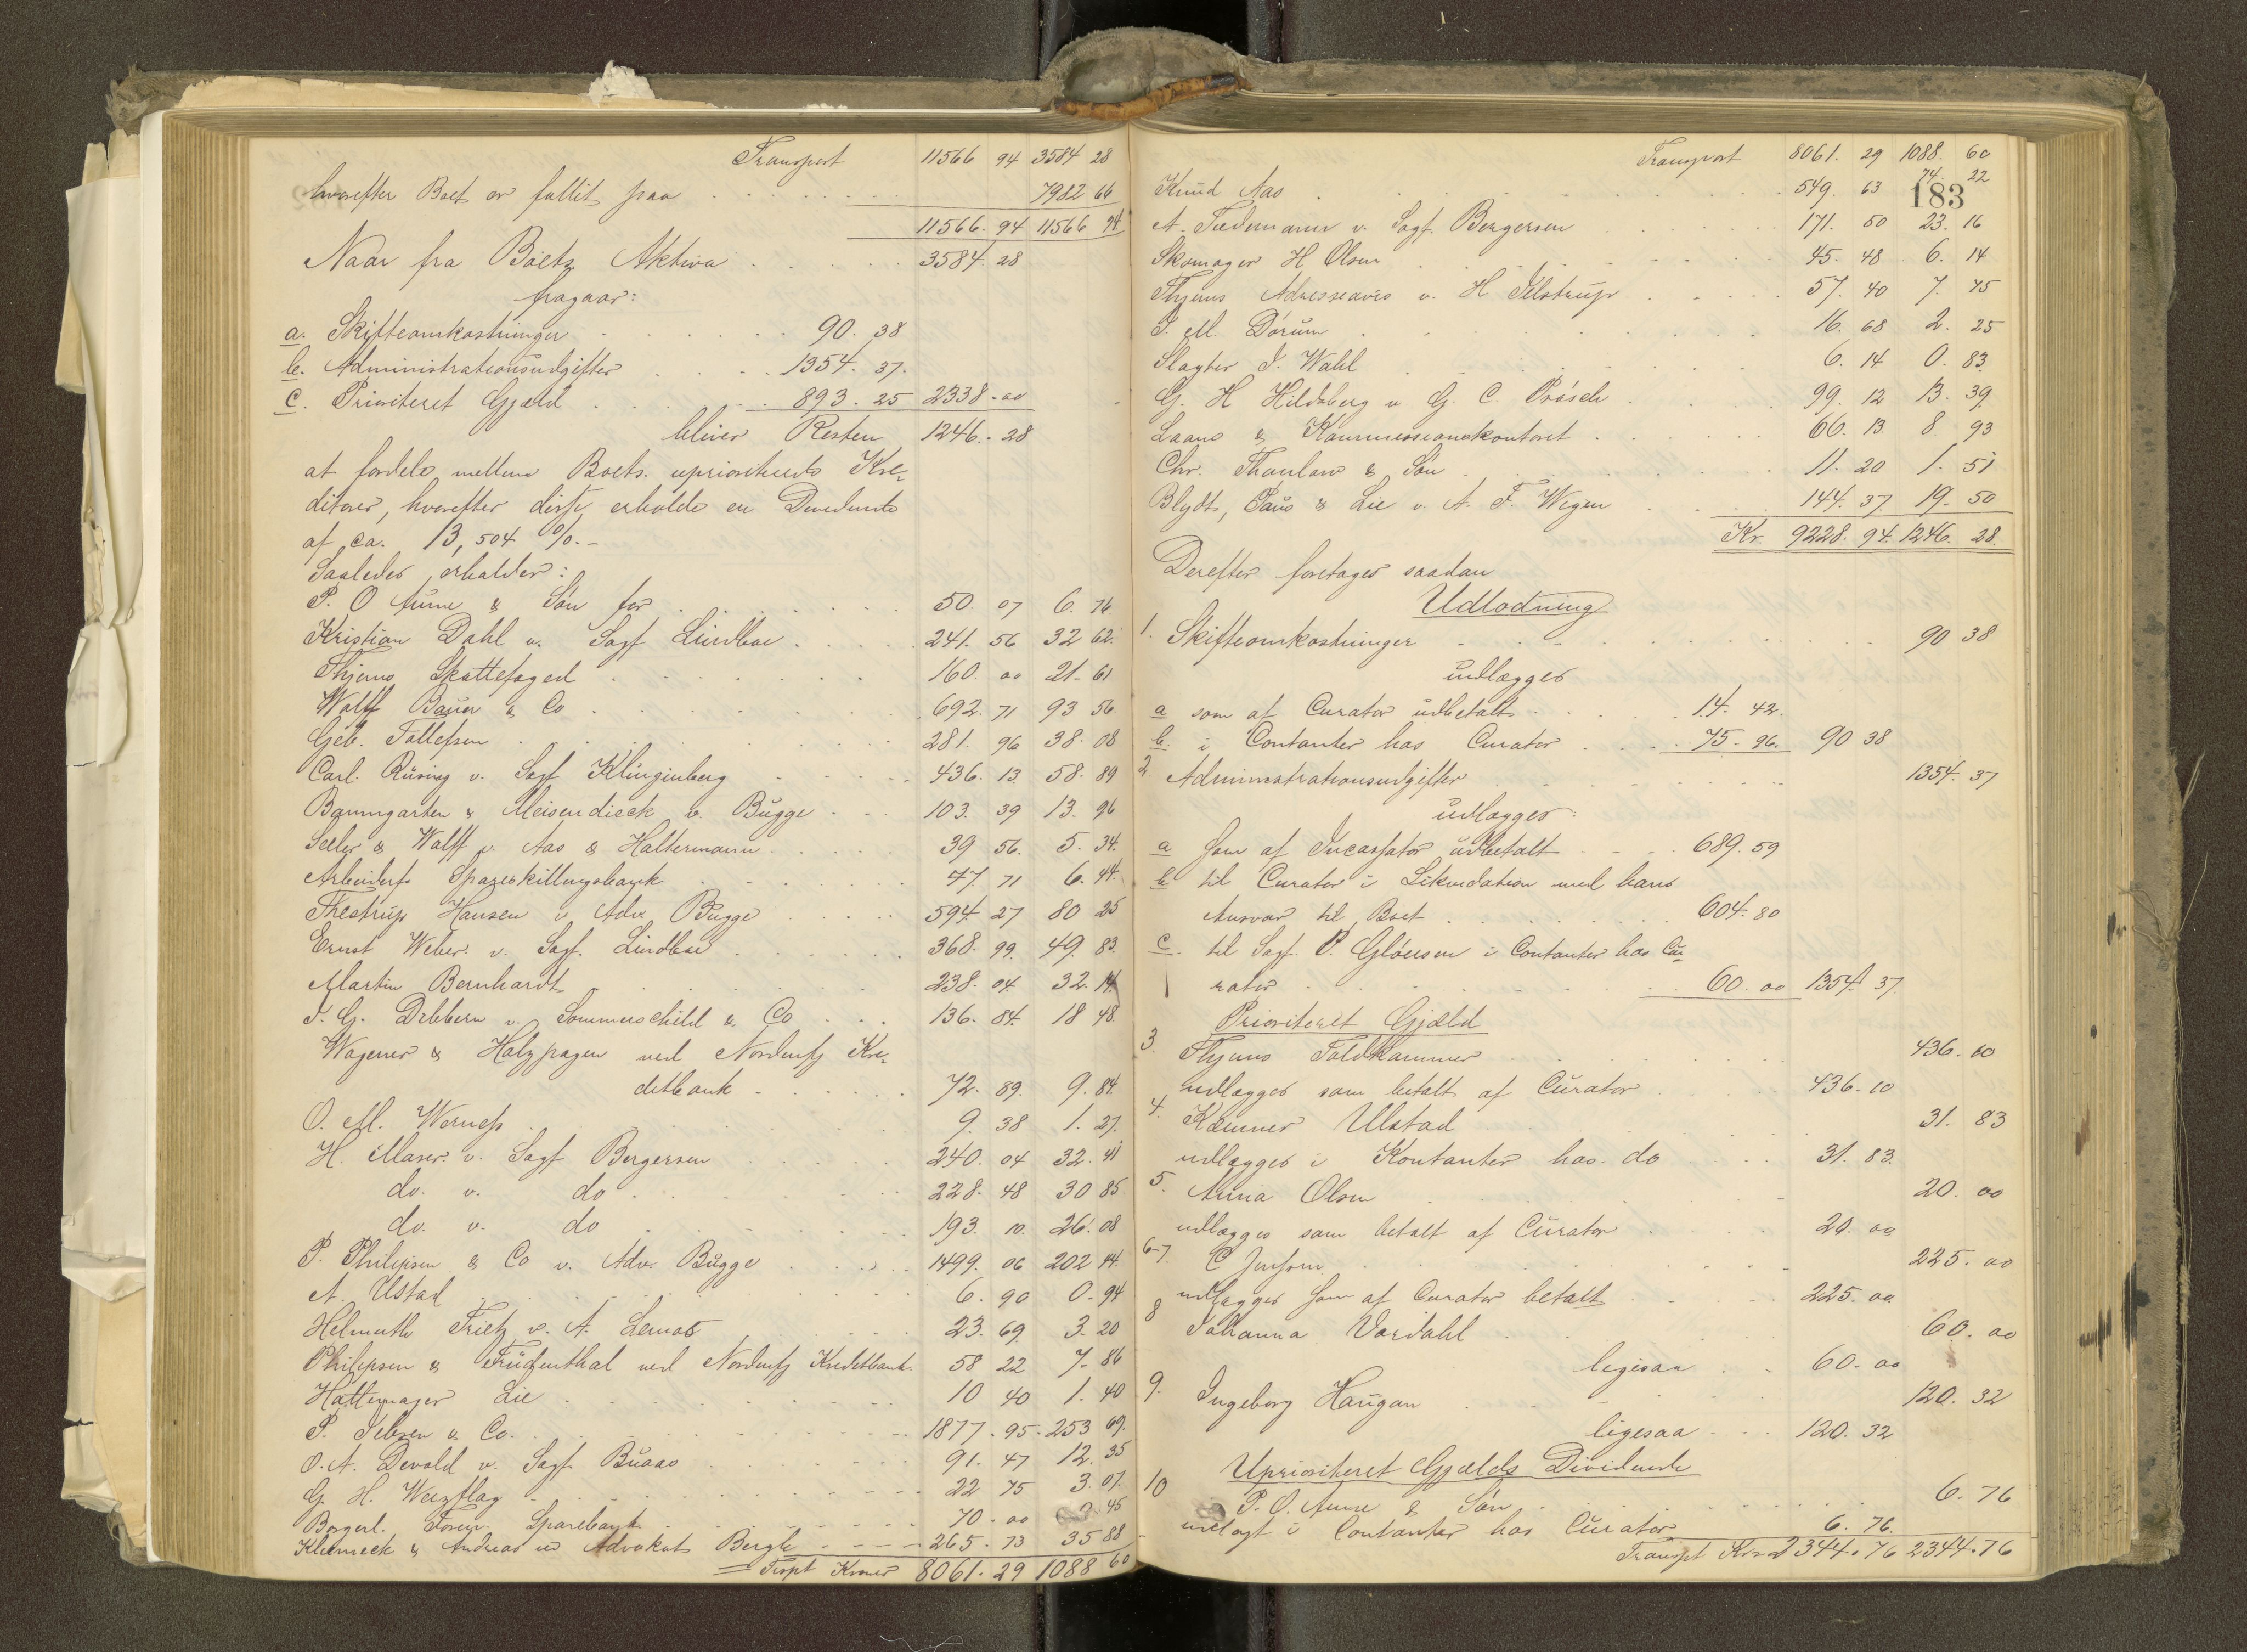 Transport 11566 94 3584 28
hvorefter Boet er fallit paa 7982 66
11566. 94 11566 94
Naar fra Boets Aktiva 3584. 28
fragaar:
a. Skifteomkostninger 90. 38
b. Administrationsudgifter 1354. 37.
c. Prioriteret Gjæld 893. 25 2338. 00
bliver Resten 1246. 28
at fordele mellem Boets uprioriterede Kre-
ditorer, hvorefter disse erholde en Dividende
af ca. 13,504 %.-
Saaledes erholder:
P. O Aune & Søn for 50. 07 6. 76
Kristian Dahl v. Sagf Lindboe 241. 56 32 62.
Thjems Skattefoged 160. 00 21. 61
Wolff Bauer & Co 692. 71 93 56
Geb. Tollefsen 281. 96 38. 08
Carl. Rüsing v. Sagf Klingenberg 436. 13. 58. 89
Baumgarten & Meisendieck v. Bugge 103. 39 13. 96
Seeler & Wolff v. Aas & Haltermann 39 56. 5. 34.
Arbeiderf Spareskillingsbank 47. 71 6. 44.
Thestrup Hansen v. Adv. Bugge 594. 27 80 25
Ernst Weber. v. Sagf. Lindboe 368. 99. 49. 83.
Martin Bernhardt 238. 04. 32. 14
J. G. Debbern v. Sommerschild & Co 136. 84. 18 48.
Wagener & Holzpagen ved Nordenfj Kre-
ditbank 72. 89. 9. 84.
O. M. Werness 9. 38 1. 27.
H. Maser. v. Sagf Bergersen 240. 04 32. 41
do. v. do 228. 48 30 85
do. v. do 193. 10. 26. 08
P. Philipsen & Co v. Adv. Bugge 1499. 06 202 44.
A. Ulstad 6. 90 0. 94
Helmuth Frietz v. A. Lemos 23. 69. 3. 20
Philipsen & Früdenthal ved Nordenfj Kreditbank. 58 22 7. 86
Hattemager Lie 10 40 1. 40
P. Jebsen & Co. 1877. 95. 253 69.
O. A. Devold v. Sagf. Buaas 91. 47 12. 35
G. H. Werzflag 22 75 3. 07.
Borgerl. Foren. Sparebank 70. 00 9. 45
Kleemeck & Andreas ved Advokat Bergh 265. 73 35 88
Trspt Kroner 8061. 29 1088 60
Transport 8061. 29 1088. 60
183
Knud Aas 549. 63 74. 22
A. Tiedemann v. Sagf. Bergersen 171. 50 23. 16
Skomager H Olsen 45. 48 6. 14
Thjems Adresseavis v. H Jelstrup 57. 40 7. 75
J. M. Dørum 16. 68 2. 25
Slagter J. Wahl 6. 14 0. 83.
G. H Hildsberg v G. C. Prøsch 99. 12 13. 39.
Laane & Kommissionskontoret 66. 13. 8. 93
Chr. Thaulow & Søn 11. 20 1. 51
Blydt, Paus & Lie v. A. F. Wigen 144. 37. 19. 50
Kr. 9228. 94. 1246. 28.
Derefter foretages saadan
Udlodning
1. Skifteomkostninger 90 38
udlægges
a som af Curator udbetalt 14. 42.
b. i Contanter hos Curator 75. 96. 90 38
2. Administrationsudgifter 1354. 37
udlægges:
a som af Incassator udbetalt 689. 59
b til Curator i Likvidation med hans
Ansvar til Boet 604. 80
c. til Sagf. P. Gløersen i Contanter hos Cu-
rator 60. 00 1354. 37.
Prioriteret Gjæld
3. Thjems Toldkammer 436. 10
udlægges som betalt af Curator 436. 10
4. Kæmner Ulstad 31. 83
udlægges i Kontanter hos. do 31. 83.
5. Anna Olsen 20. 00
udlægges som betalt af Curator 20. 00
6-7. C Jenssen 225. 00
udlægges som af Curator betalt 225. 00
8 Johanna Vordahl 60. 00
ligesaa 60. 00
9. Ingeborg Haugan 120. 32
ligesaa 120. 32
Uprioriteret Gjælds Dividende
10 P. O. Aune & Søn 6. 76
udlagt i Contanter hos Curator 6. 76.
Transpt Kr. 2344. 76 2344. 76